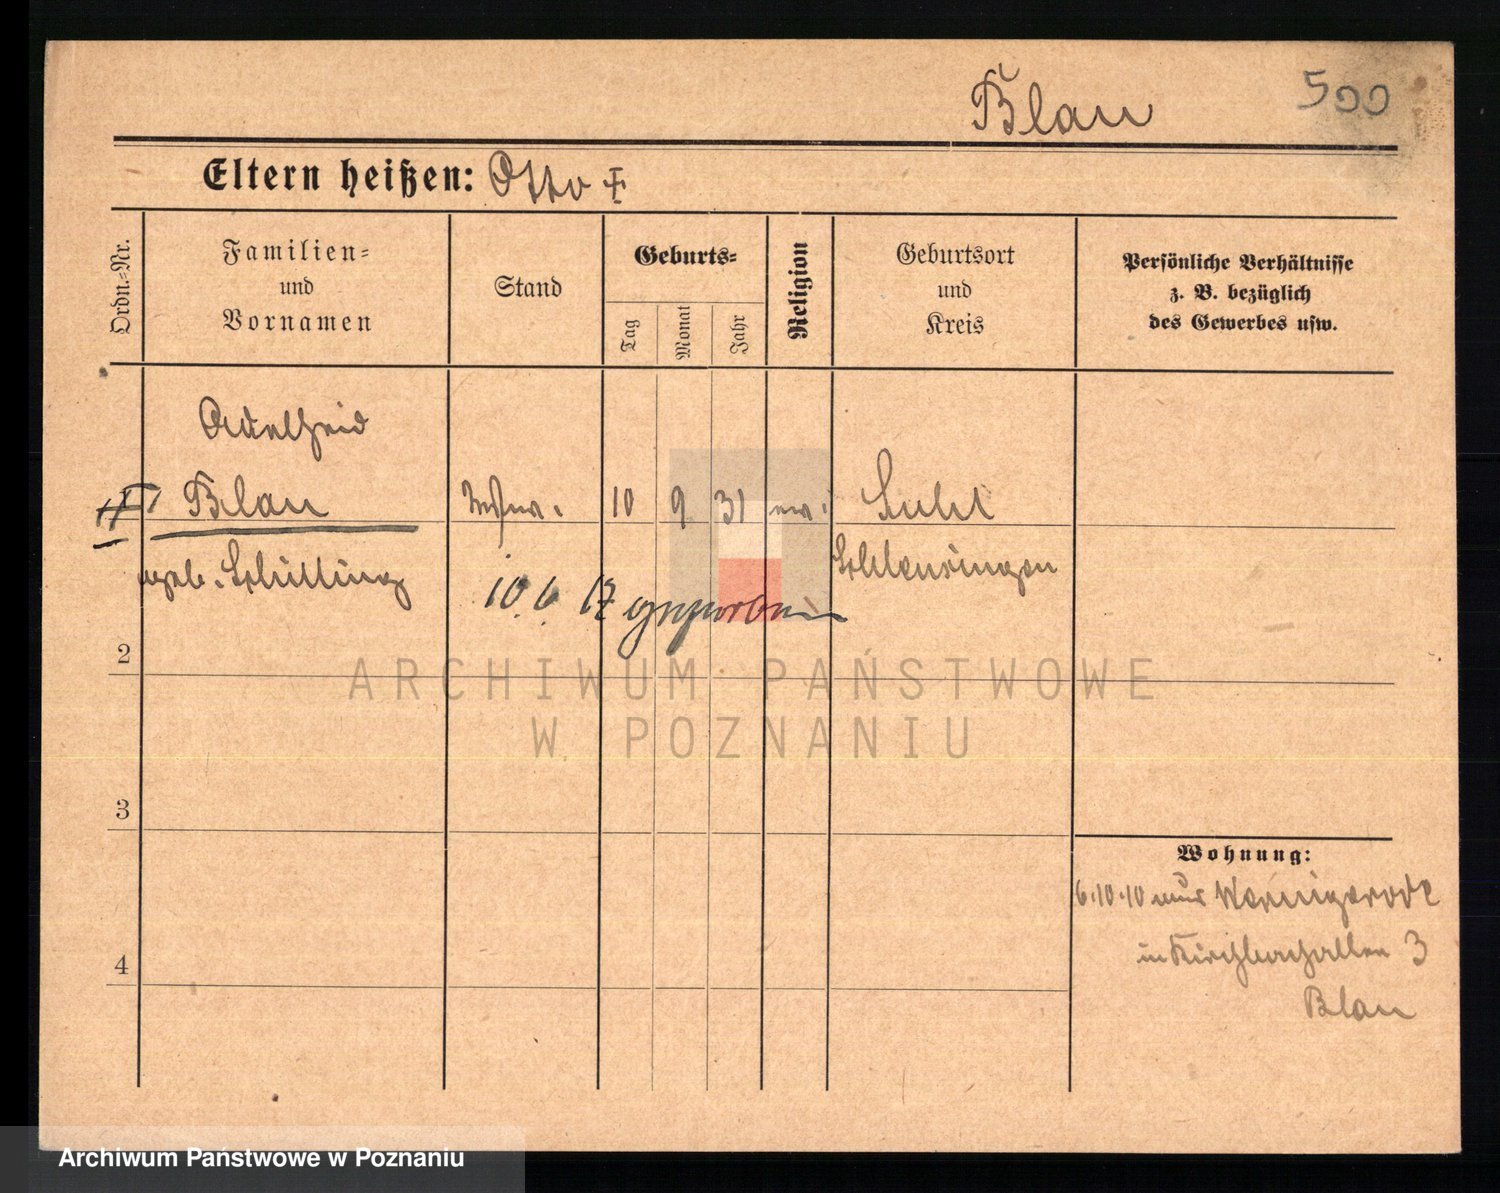 Blau 500
Eltern heißen: Otto †
Ordn.-Nr.
Familien-
und
Vornamen
Stand
Geburts-
Tag
Monat
Jahr
Religion
Geburtsort
und
Kreis
Persönliche Verhältnisse
z. B. bezüglich
des Gewerbes usw.
Adelheid
1 Blau Wtwe. 10 9 31 ev. Suhl
geb. Schilling Schleusingen
10. 6. 17 gestorben
2
ARCHIWUM PAŃSTWOWE
W POZNANIU
3
Wohnung:
6.10.10 aus Wernigerode
4
3
Blau
Archiwum Państwowe w Poznaniu